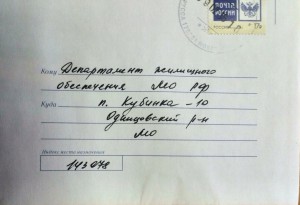 ПОЧТА
РОССИИ
Кому Департамент жилищного
обеспечения МО РФ
Куда п. Кубинка-10
Одинцовский р-н
МО
Индекс места назначения
143078